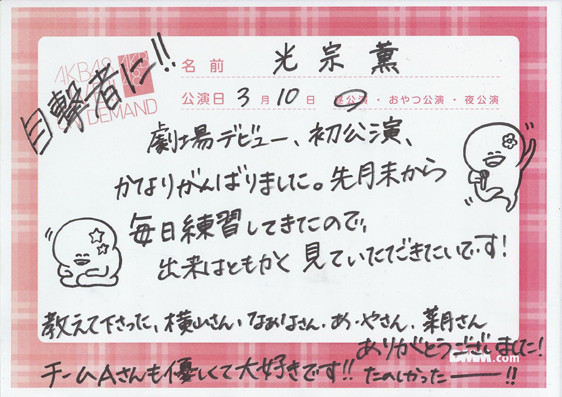 目撃者に!!
AKB48
DEMAND
名前 光宗薫
公演日 3月10日 昼公演・おやつ公演・夜公演
劇場デビュー、初公演、
かなりがんばりました。先月末から
毎日練習してきたので、
出来はともかく見ていただきたいです!
教えて下さった、横山さん、なおりょさん、あ・やさん、葉月さん
ありがとうございました!
.com
チームAさんも優しくて大好きです!! たのしかったーー!!